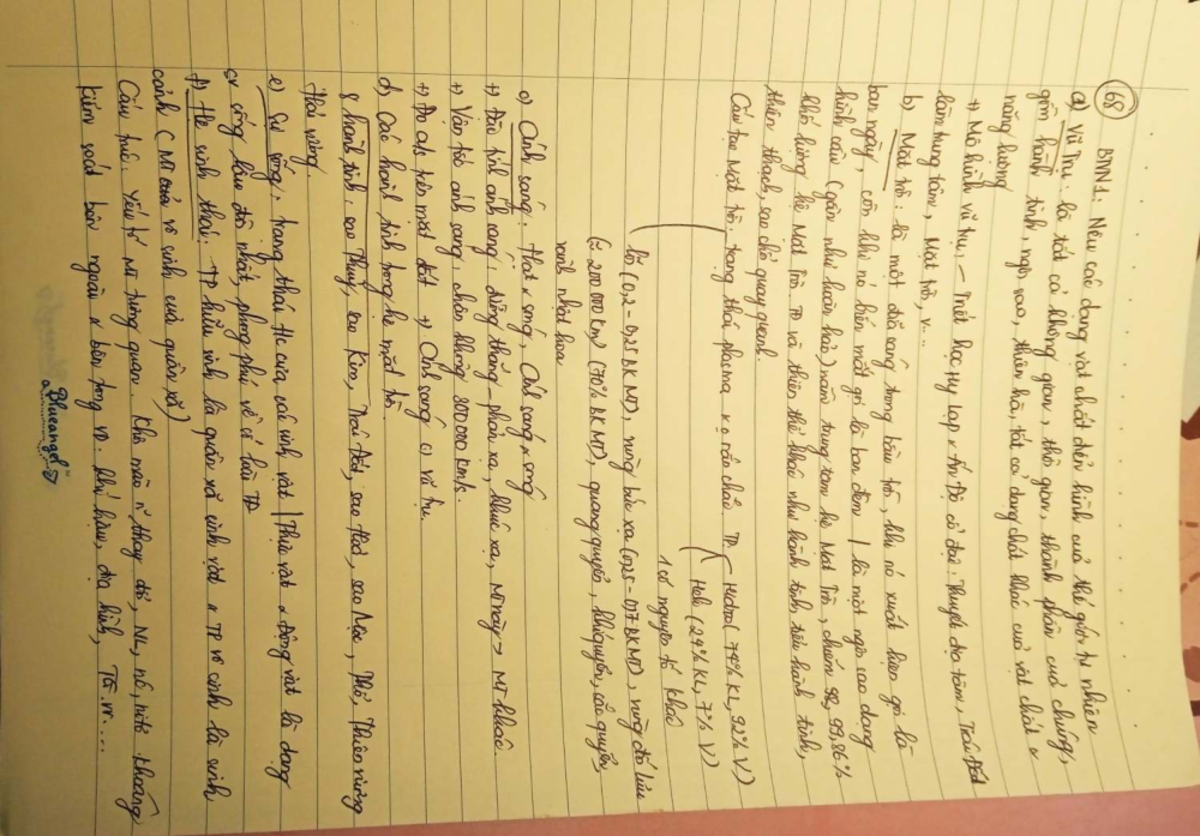 68 BTNN1: Nêu các dạng vật chất điển hình của thế giới tự nhiên
a) Vũ Trụ: là tất cả không gian, thời gian, thành phần của chúng,
gồm hành tinh, ngôi sao, thiên hà, tất cả dạng chất khác của vật chất &
năng lượng
+) Mô hình vũ trụ, - Triết học Hy Lạp & Ấn Độ cổ đại: Thuyết địa tâm, Trái Đất
làm trung tâm, Mặt trời, v...
b) Mặt trời: là một đĩa sáng trong bầu trời, khi nó xuất hiện gọi là
ban ngày, còn khi nó biến mất gọi là ban đêm / là một ngôi sao dạng
hình cầu (gần như hoàn hảo) nằm trung tâm hệ Mặt Trời, chiếm 99,86%
khối lượng hệ Mặt Trời. TĐ và thiên thể khác như hành tinh, tiểu hành tinh,
thiên thạch, sao chổi quay quanh.
Cấu tạo Mặt trời: trạng thái plasma TP: Hidro (74% KL, 92% V)
Heli (24% KL, 7% V)
1 số nguyên tố khác
lõi (0,2 - 0,25 BKMT), vùng bức xạ (0,25 - 0,7 BKMT), vùng đối lưu
(= 200 000 km) (70% BKMT), quang quyển, khí quyển, sắc quyển,
vành nhật hoa
c) Ánh sáng: Hạt & sóng, Ánh sáng & sóng
+) Đặc tính ánh sáng: đường thẳng - phản xạ, khúc xạ, MT này -> MT khác.
+) Vận tốc ánh sáng, chân không 300 000 km/s.
+) Đo a/s trên mặt đất +) Ánh sáng vũ trụ
d) Các hành tinh trong hệ mặt trời
8 hành tinh: sao Thủy, sao Kim, Trái Đất, sao Hoả, sao Mộc, Thổ, Thiên vương
Hải vương
e) Sự sống: trạng thái t/c của các sinh vật / Thực vật & Động vật là dạng
sv sống lâu đời nhất, phong phú về
f) Hệ sinh thái: TP hữu sinh là quần xã sinh vật & TP vô sinh là sinh
cảnh (MT của vô sinh của quần xã)
Cấu trúc: Yếu tố MT tương quan. thay đổi, NL, nitơ khoáng
Kiểm soát bên ngoài & bên trong VD: khí hậu, địa hình,
Blueangel